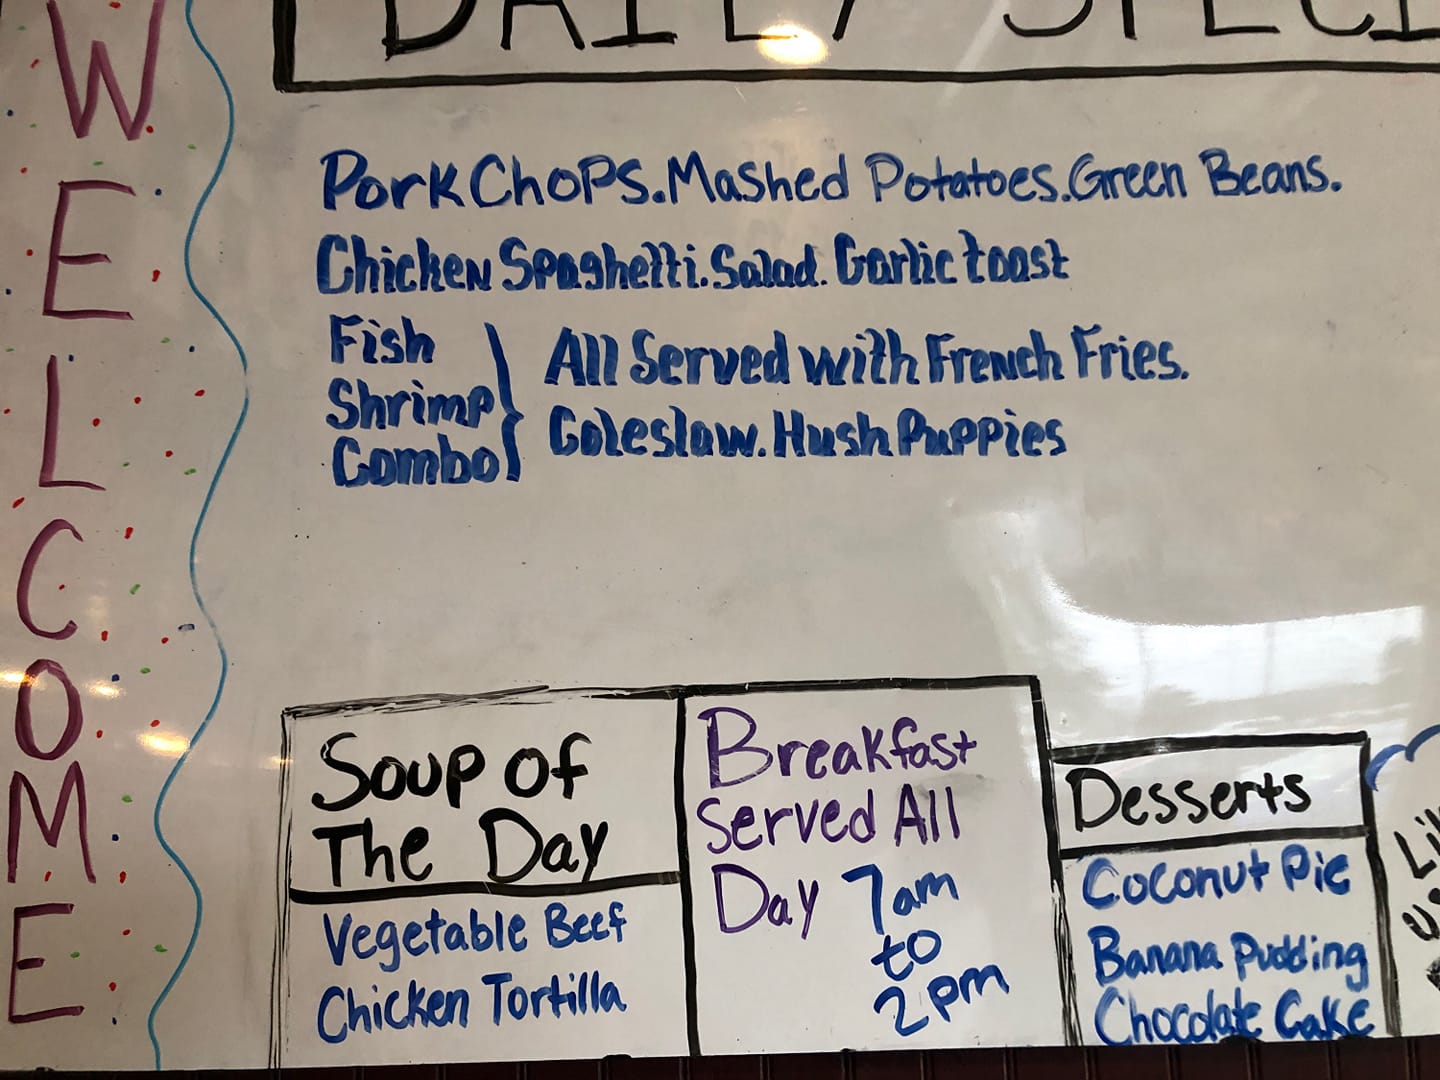 WELCOME
DAILY SPECI
Pork Chops. Mashed Potatoes. Green Beans.
Chicken Spaghetti. Salad. Garlic toast
Fish
Shrimp
Combo
All Served with French Fries.
Coleslaw. Hush Puppies
Soup of
The Day
Vegetable Beef
Chicken Tortilla
Breakfast
Served All
Day 7am
to
2pm
Desserts
Coconut Pie
Banana Pudding
Chocolate Cake